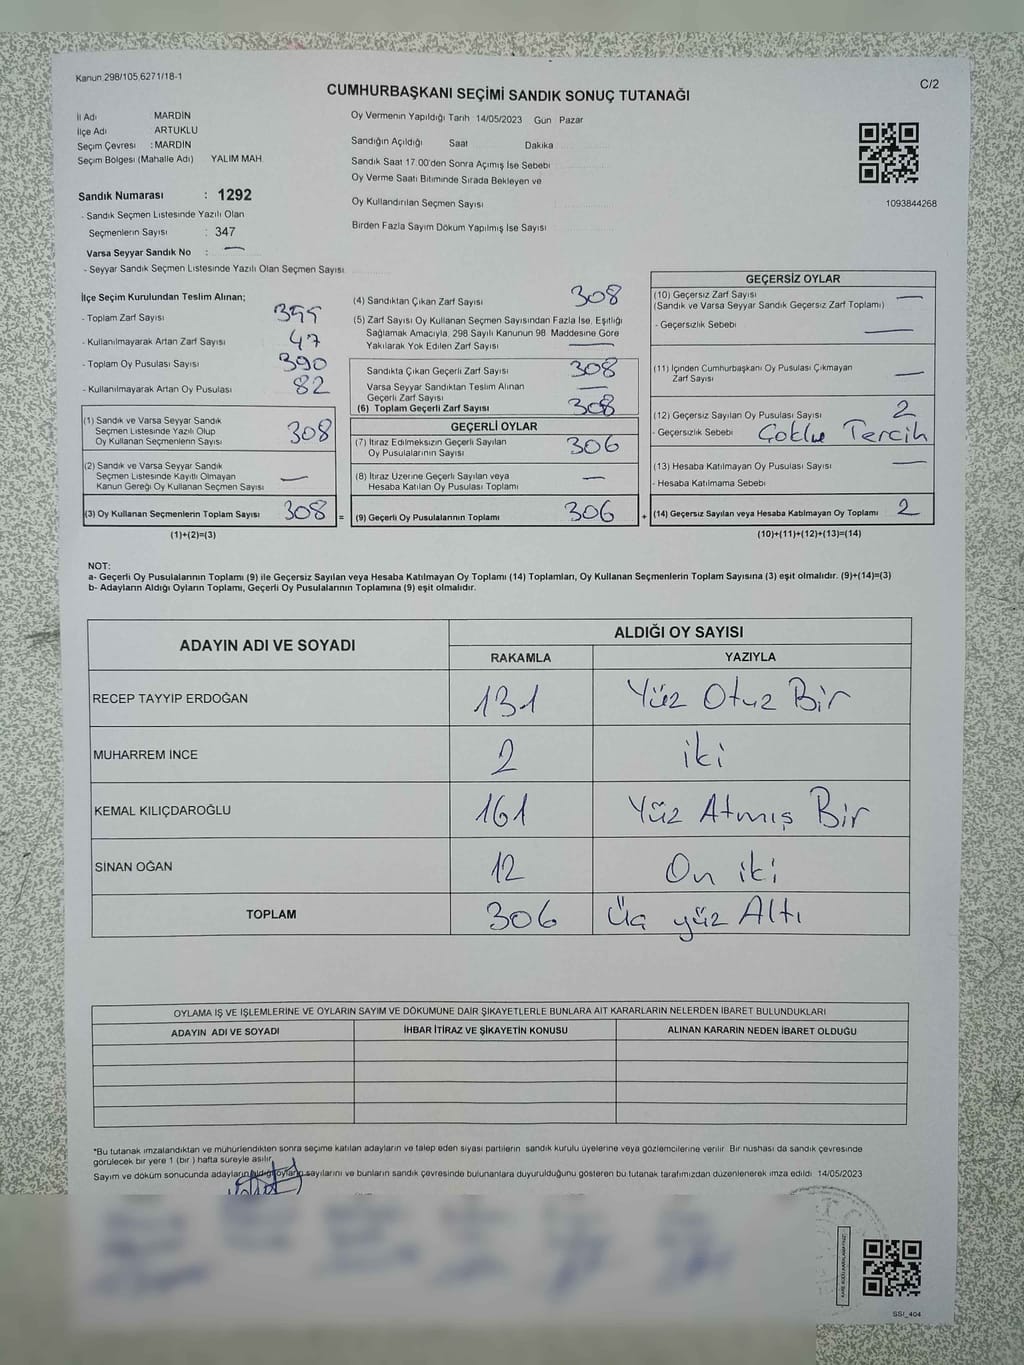 Kanun 298/105,6271/18-1
C/2
CUMHURBAŞKANI SEÇİMİ SANDIK SONUÇ TUTANAĞI
İl Adı MARDİN
İlçe Adı ARTUKLU
Seçim Çevresi : MARDİN
Seçim Bölgesi (Mahalle Adı) YALIM MAH.
Sandık Numarası : 1292
- Sandık Seçmen Listesinde Yazılı Olan
Seçmenlerin Sayısı : 347
Varsa Seyyar Sandık No : —
- Seyyar Sandık Seçmen Listesinde Yazılı Olan Seçmen Sayısı
Oy Vermenin Yapıldığı Tarih 14/05/2023 Gün Pazar
Sandığın Açıldığı Saat Dakika
Sandık Saat 17.00'den Sonra Açımış İse Sebebi
Oy Verme Saati Bitiminde Sırada Bekleyen ve
Oy Kullandırılan Seçmen Sayısı
Birden Fazla Sayım Döküm Yapılmış İse Sayısı
1093844268
İlçe Seçim Kurulundan Teslim Alınan;
- Toplam Zarf Sayısı
- Kullanılmayarak Artan Zarf Sayısı 47
- Toplam Oy Pusulası Sayısı 390
- Kullanılmayarak Artan Oy Pusulası 82
(1) Sandık ve Varsa Seyyar Sandık
Seçmen Listesinde Yazılı Olup
Oy Kullanan Seçmenlerin Sayısı 308
(2) Sandık ve Varsa Seyyar Sandık
Seçmen Listesinde Kayıtlı Olmayan
Kanun Gereği Oy Kullanan Seçmen Sayısı —
(3) Oy Kullanan Seçmenlerin Toplam Sayısı 308 =
(1)+(2)=(3)
(4) Sandıktan Çıkan Zarf Sayısı 308
(5) Zarf Sayısı Oy Kullanan Seçmen Sayısından Fazla İse, Eşitliği
Sağlamak Amacıyla, 298 Sayılı Kanunun 98. Maddesine Göre
Yakılarak Yok Edilen Zarf Sayısı —
Sandıkta Çıkan Geçerli Zarf Sayısı 308
Varsa Seyyar Sandıktan Teslim Alınan
Geçerli Zarf Sayısı —
(6) Toplam Geçerli Zarf Sayısı 308
GEÇERLİ OYLAR
(7) İtiraz Edilmeksizin Geçerli Sayılan
Oy Pusulalarının Sayısı 306
(8) İtiraz Üzerine Geçerli Sayılan veya
Hesaba Katılan Oy Pusulası Toplamı —
(9) Geçerli Oy Pusulalarının Toplamı 306 +
GEÇERSİZ OYLAR
(10) Geçersiz Zarf Sayısı —
(Sandık ve Varsa Seyyar Sandık Geçersiz Zarf Toplamı)
- Geçersizlik Sebebi —
(11) İçinden Cumhurbaşkanı Oy Pusulası Çıkmayan
Zarf Sayısı —
(12) Geçersiz Sayılan Oy Pusulası Sayısı 2
- Geçersizlik Sebebi Çoklu Tercih
(13) Hesaba Katılmayan Oy Pusulası Sayısı —
- Hesaba Katılmama Sebebi
(14) Geçersiz Sayılan veya Hesaba Katılmayan Oy Toplamı 2
(10)+(11)+(12)+(13)=(14)
NOT:
a- Geçerli Oy Pusulalarının Toplamı (9) ile Geçersiz Sayılan veya Hesaba Katılmayan Oy Toplamı (14) Toplamları, Oy Kullanan Seçmenlerin Toplam Sayısına (3) eşit olmalıdır. (9)+(14)=(3)
b- Adayların Aldığı Oyların Toplamı, Geçerli Oy Pusulalarının Toplamına (9) eşit olmalıdır.
ADAYIN ADI VE SOYADI
ALDIĞI OY SAYISI
RAKAMLA YAZIYLA
RECEP TAYYIP ERDOĞAN 131 Yüz Otuz Bir
MUHARREM İNCE 2 iki
KEMAL KILIÇDAROĞLU 161 Yüz Atmış Bir
SİNAN OĞAN 12 On iki
TOPLAM 306 Üç yüz Altı
OYLAMA İŞ VE İŞLEMLERİNE VE OYLARIN SAYIM VE DÖKÜMÜNE DAİR ŞİKAYETLERLE BUNLARA AİT KARARLARIN NELERDEN İBARET BULUNDUKLARI
ADAYIN ADI VE SOYADI İHBAR İTİRAZ VE ŞİKAYETİN KONUSU ALINAN KARARIN NEDEN İBARET OLDUĞU
*Bu tutanak imzalandıktan ve mühürlendikten sonra seçime katılan adayların ve talep eden siyasi partilerin sandık kurulu üyelerine veya gözlemcilerine verilir. Bir nushası da sandık çevresinde
görülecek bir yere 1 (bir ) hafta süreyle asılır.
Sayım ve döküm sonucunda adayların aldığı oyların sayılarını ve bunların sandık çevresinde bulunanlara duyurulduğunu gösteren bu tutanak tarafımızdan düzenlenerek imza edildi. 14/05/2023
SSI_404